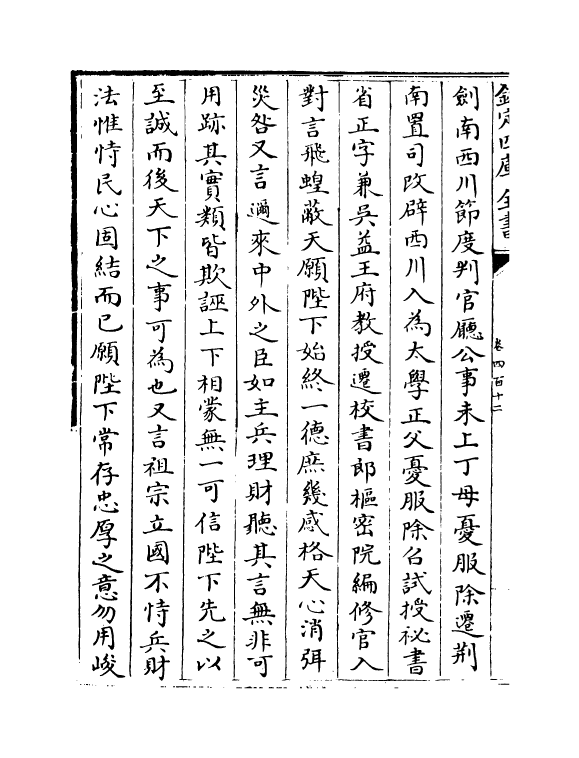 欽定四庫全書
卷四百十二
劍南西川節度判官廳公事未上丁母憂服除遷荆
南置司改辟西川入為太學正父憂服除召試授祕書
省正字兼吳益王府教授遷校書郎樞密院編修官入
對言飛蝗蔽天願陛下始終一德庶幾感格天心消弭
災咎又言邇來中外之臣如主兵理財聽其言無非可
用跡其實類皆欺誣上下相蒙無一可信陛下先之以
至誠而後天下之事可為也又言祖宗立國不恃兵財
法惟恃民心固結而已願陛下常存忠厚之意勿用峻